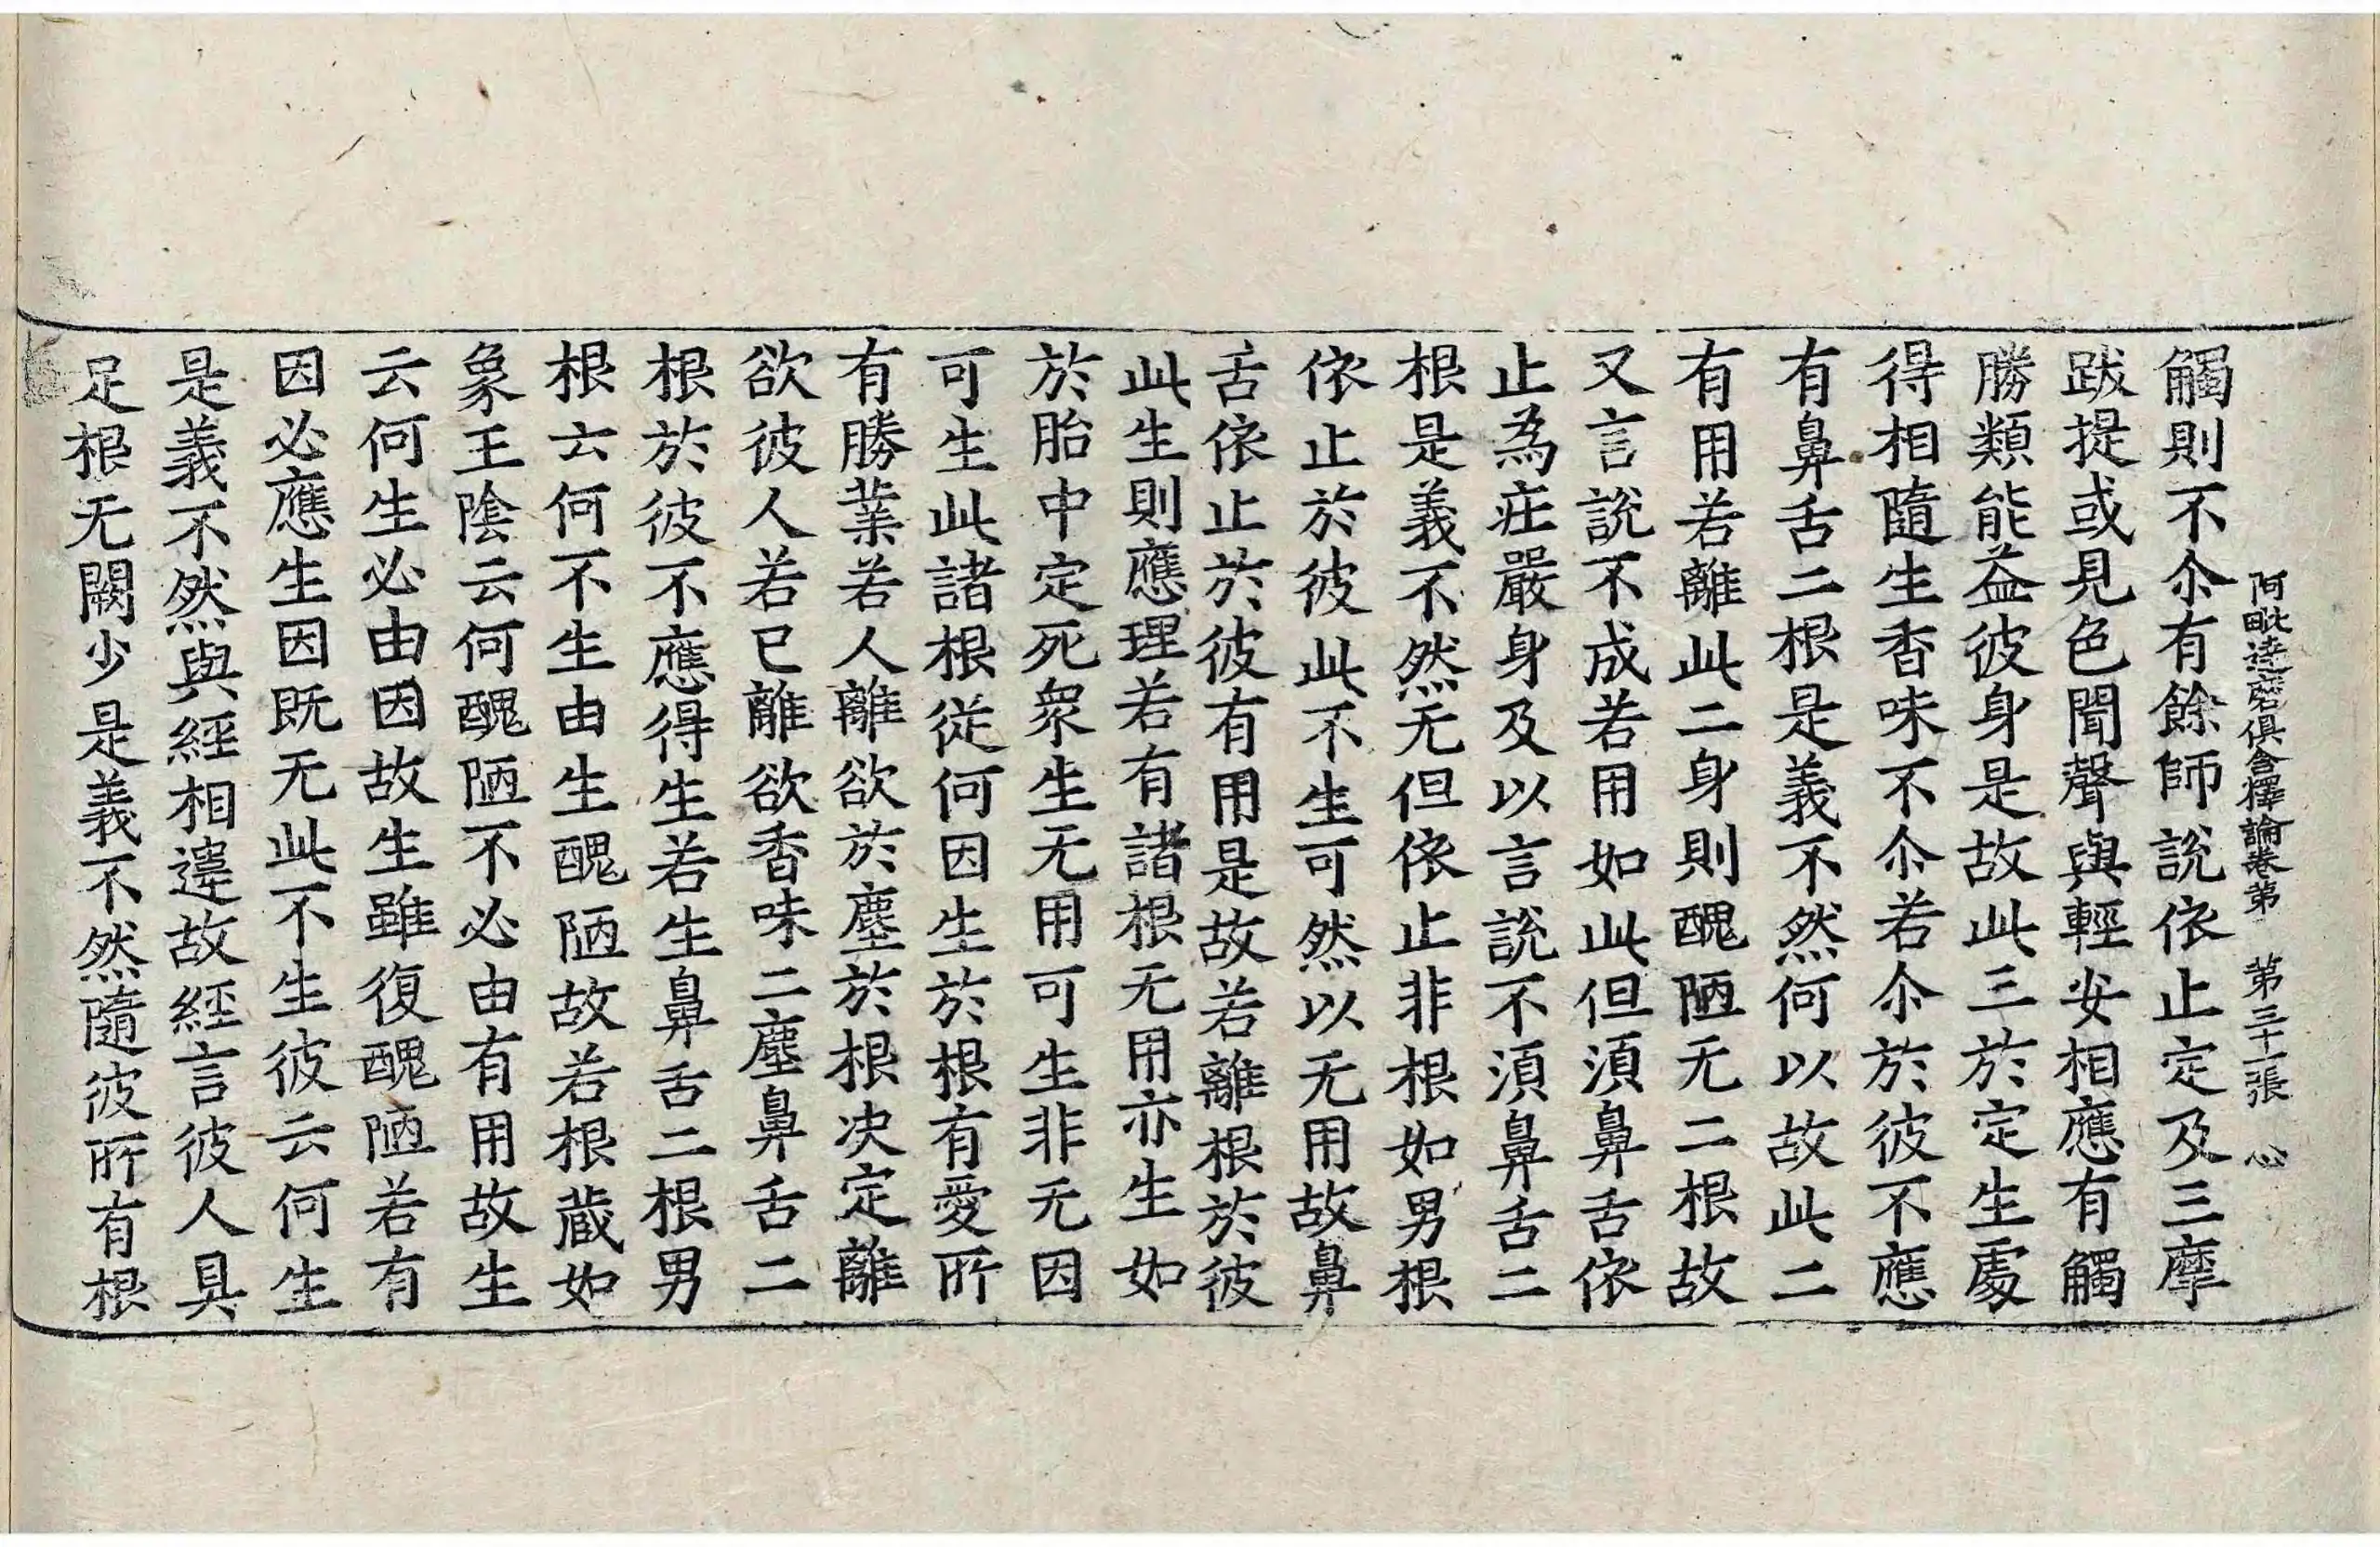 阿毗達磨俱舍釋論卷第 第三十一張 心
觸則不尒有餘師說依止定及三摩
跋提或見色聞聲與輕安相應有觸
勝類能益彼身是故此三於定生處
得相隨生香味不尒若尒於彼不應
有鼻舌二根是義不然何以故此二
有用若離此二身則醜陋无二根故
又言說不成若用如此但湏鼻舌依
止為莊嚴身及以言說不湏鼻舌二
根是義不然无但依止非根如男根
依止於彼此不生可然以无用故鼻
舌依止於彼有用是故若離根於彼
此生則應理若有諸根无用亦生如
於胎中定死衆生无用可生非无因
可生此諸根從何因生於根有愛所
有勝業若人離欲於塵於根决定離
欲彼人若已離欲香味二塵鼻舌二
根於彼不應得生若生鼻舌二根男
根云何不生由生醜陋故若根蔵如
象王陰云何醜陋不必由有用故生
云何生必由因故生雖復醜陋若有
因必應生因既无此不生彼云何生
是義不然與經相違故經言彼人具
足根无闕少是義不然隨彼所有根